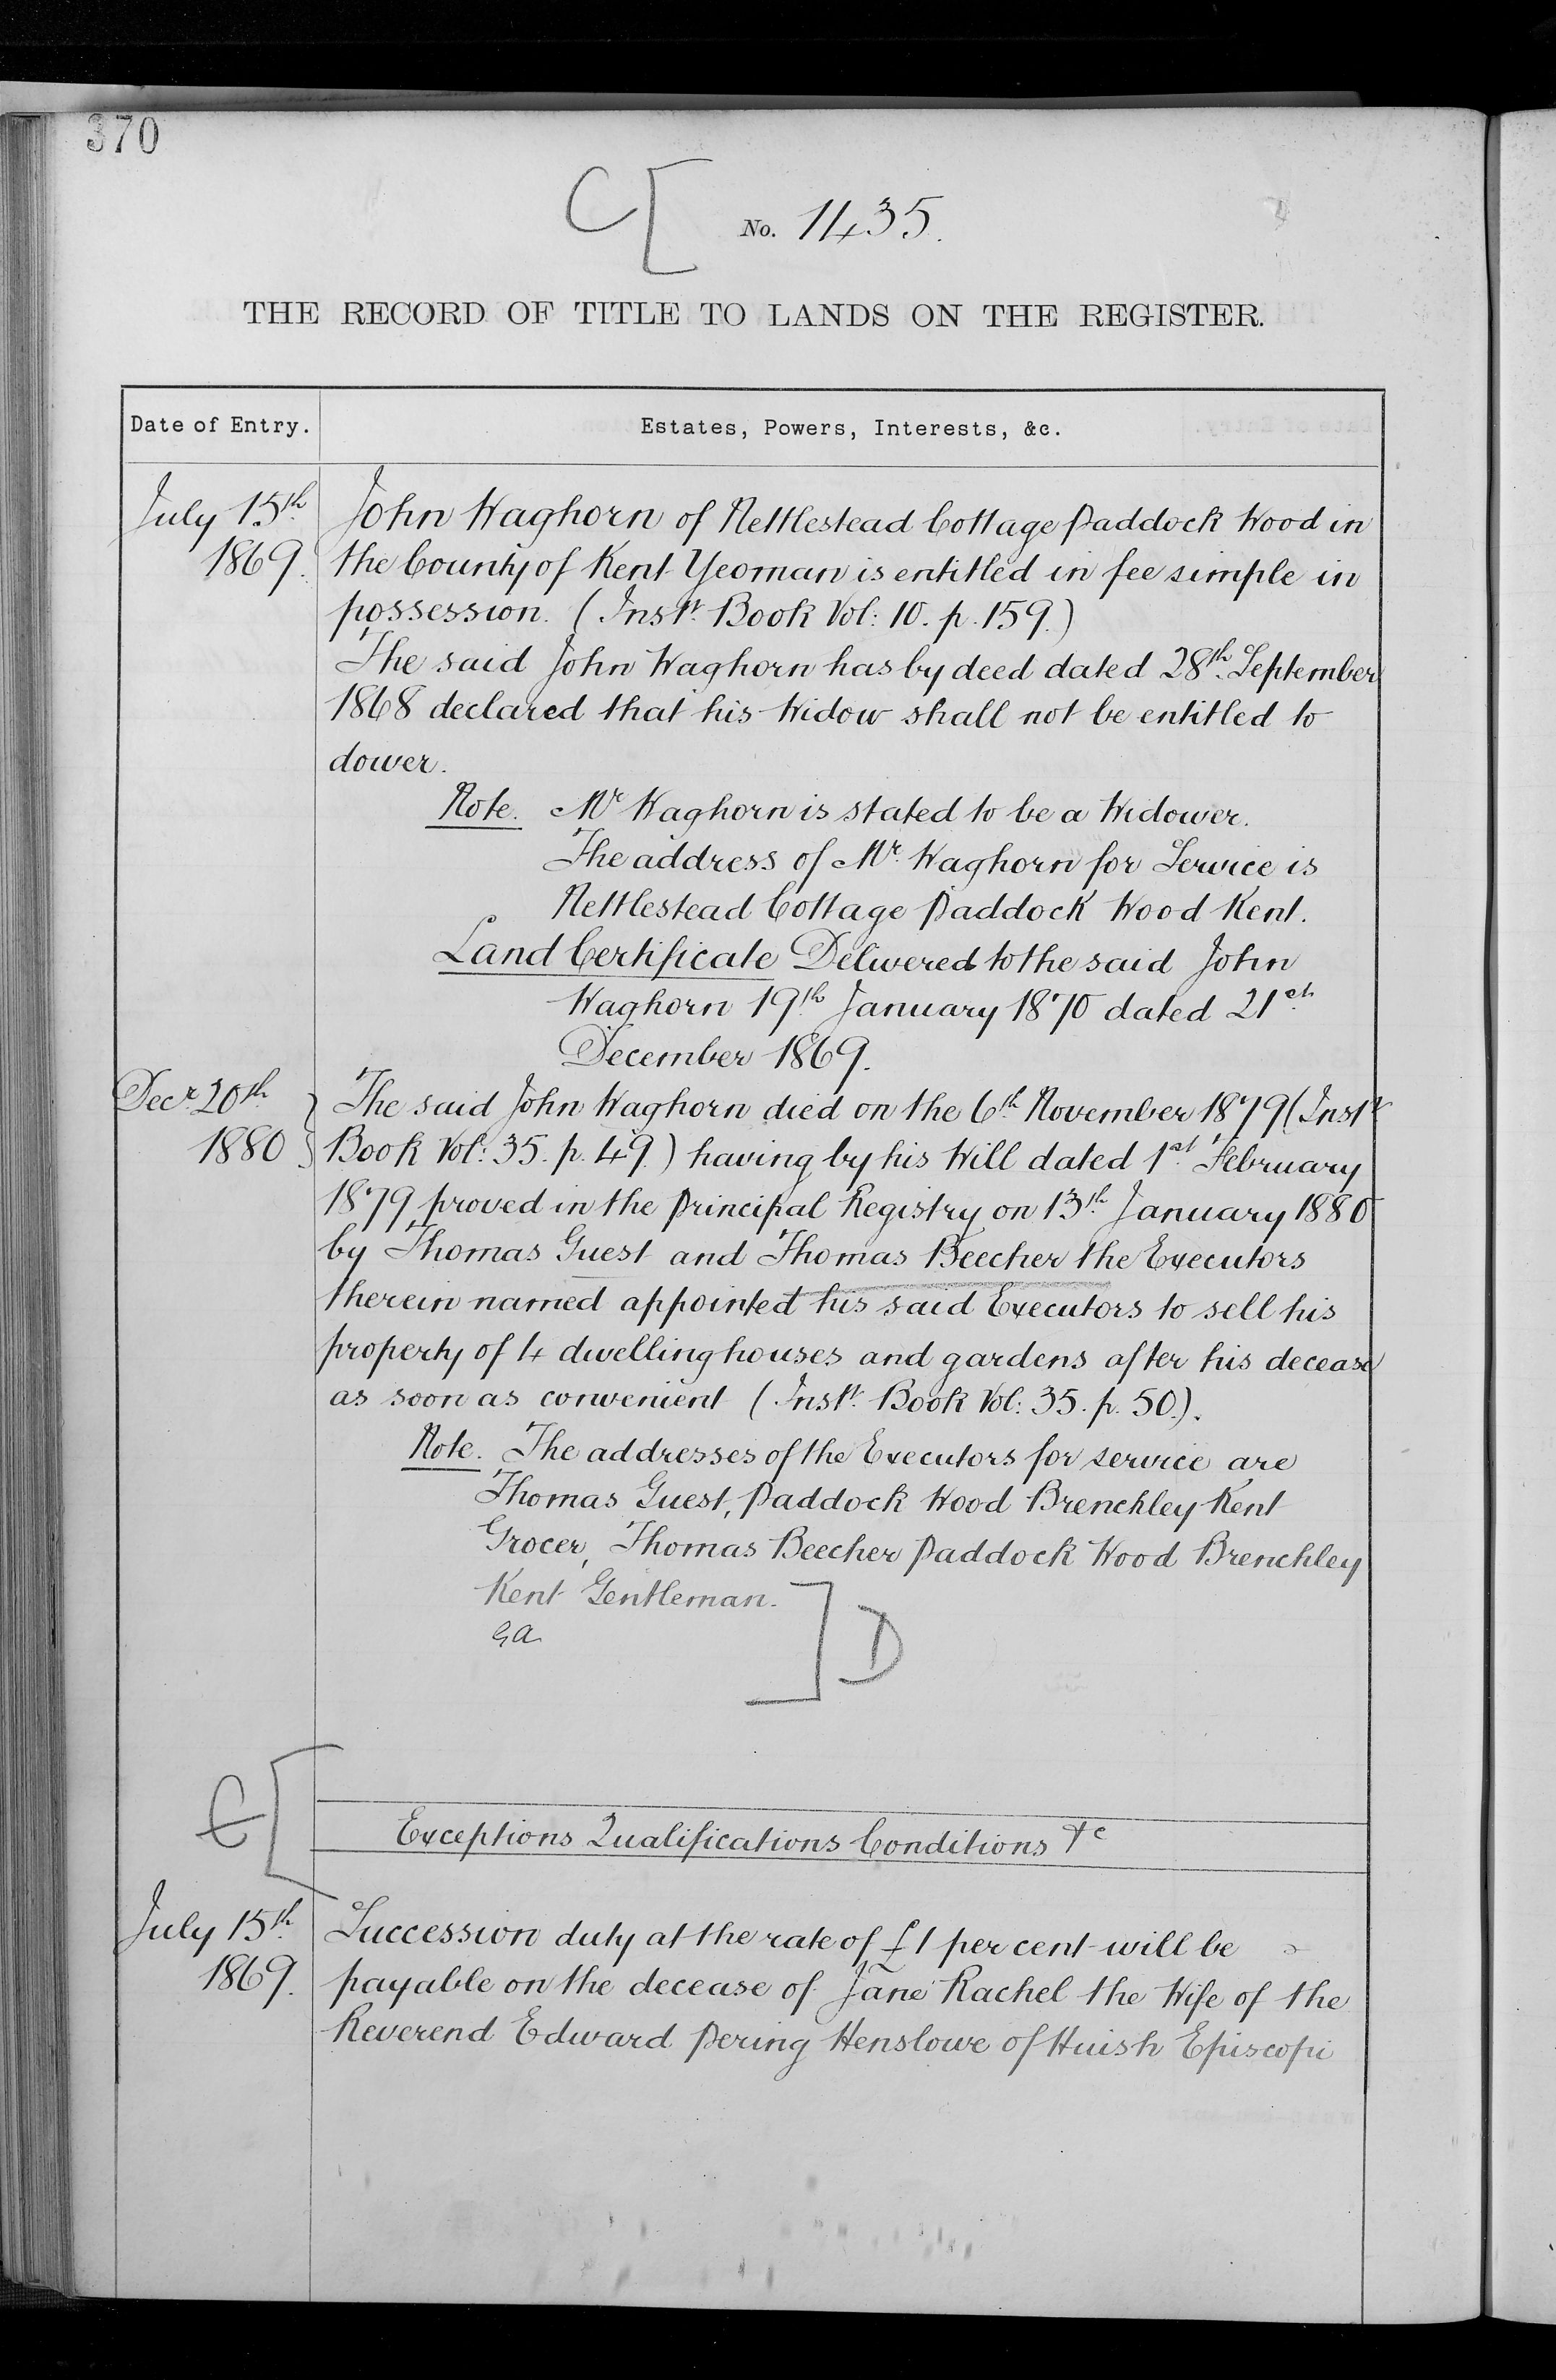 370
C[ No. 1435.
THE RECORD OF TITLE TO LANDS ON THE REGISTER.
Date of Entry. Estates, Powers, Interests, &c.
July 15th John Waghorn of Nettlestead Cottage Paddock Wood in
1869. the County of Kent Yeoman is entitled in fee simple in
possession. (Instt. Book Vol: 10. p. 159.)
The said John Waghorn has by deed dated 28th September
1868 declared that his Widow shall not be entitled to
dower.
Note. Mr Waghorn is stated to be a Widower.
The address of Mr. Waghorn for Service is
Nettlestead Cottage Paddock Wood Kent.
Land Certificate Delivered to the said John
Waghorn 19th January 1870 dated 21st
December 1869.
Decr 20th The said John Waghorn died on the 6th November 1879 (Instt
1880 Book Vol: 35. p. 49.) having by his Will dated 1st February
1879 proved in the Principal Registry on 13th January 1880
by Thomas Guest and Thomas Beecher the Executors
therein named appointed his said Executors to sell his
property of 4 dwellinghouses and gardens after his decease
as soon as convenient (Instt. Book Vol: 35. p. 50.).
Note. The addresses of the Executors for service are
Thomas Guest, Paddock Wood Brenchley Kent
Grocer, Thomas Beecher Paddock Wood Brenchley
Kent Gentleman. ] D
E [
Exceptions Qualifications Conditions &c
July 15th Succession duty at the rate of £1 per cent will be
1869. payable on the decease of Jane Rachel the Wife of the
Reverend Edward Pering Henslowe of Huish Episcopi